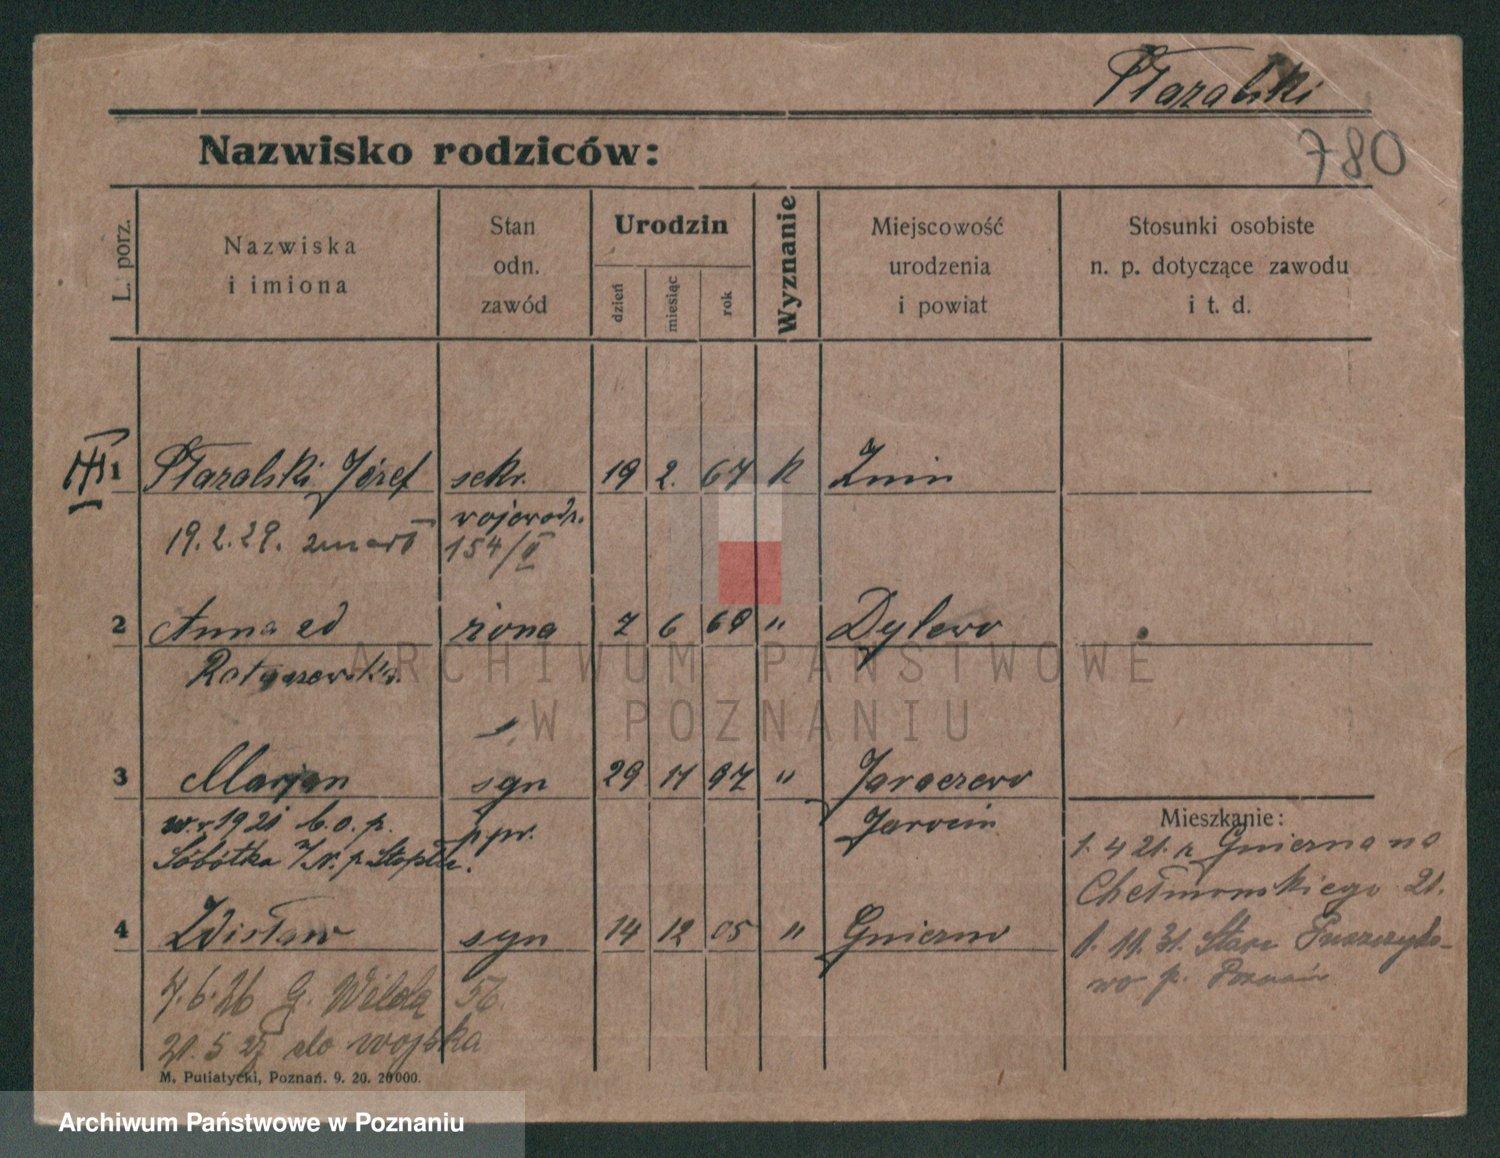 Ptaralski
780
Nazwisko rodziców:
L. porz.
Nazwiska
i imiona
Stan
odn.
zawód
Urodzin
dzień
miesiąc
rok
Wyznanie
Miejscowość
urodzenia
i powiat
Stosunki osobiste
n. p. dotyczące zawodu
i t. d.
1 Józef sekr. 19 2. 67 k Żnin
19.2.29. zmarł wojewodz.
154/II
2 Anna zd żona 7 6 69 " Dylewo
ARCHIWUM PAŃSTWOWE
W POZNANIU
3 Marjan syn 29 11 97 " Jaraczewo
w r 1921 b.o.p. ppr. Jarocin
Sobótka
Mieszkanie:
1. 4 21. z Gniezna na
Chełmońskiego 21.
4 Zdisław syn 14 12 05 " Gniezno
1. 11. 31. Stare Puszczyko-
wo p. Poznań
7.6.26 G. Wilda 56.
21.5 27 do wojska
M. Putiatycki, Poznań. 9. 20. 20000.
Archiwum Państwowe w Poznaniu